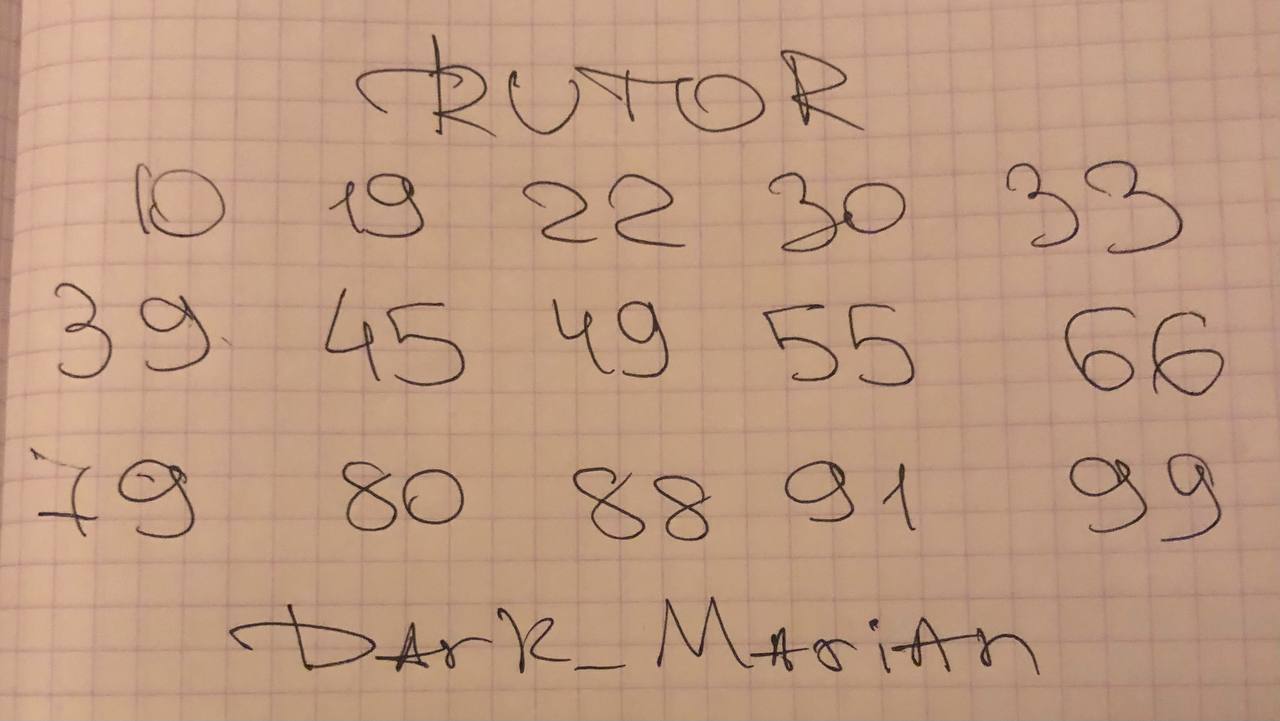 RUTOR
10 19 22 30 33
39 45 49 55 66
79 80 88 91 99
DArk_MAriAn